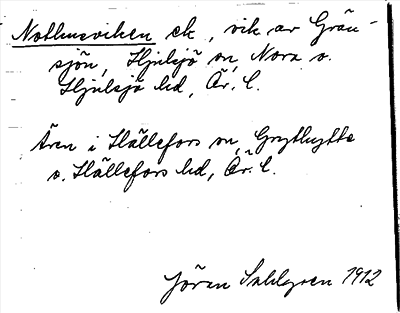 Nothusviken ek, vik av Grän-
sjön, Hjulsjö sn, Nora o.
Hjulsjö hd, Ör. l.
Även i Hällefors sn, Grythytte
o. Hällefors hd, Ör. l.
Jöran Sahlgren 1912